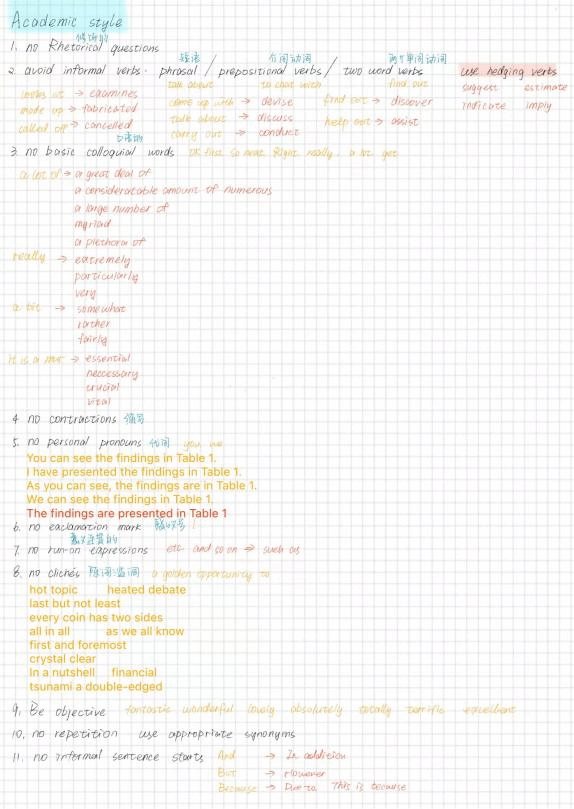 Academic style
1. no Rhetorical questions
修饰的
2. avoid informal verbs. phrasal / prepositional verbs / two word verbs use hedging verbs
短语 介词动词 两个单词动词
talk about to chat with find out suggest estimate
looks at → examines come up with → devise find out → discover indicate imply
made up → fabricated talk about → discuss help out → assist
called off → cancelled carry out → conduct
口语的
3. no basic colloquial words OK first so neat Right really, a lot get
a lot of → a great deal of
a consideratable amount of numerous
a large number of
myriad
a plethora of
really → extremely
particularly
very
a bit → somewhat
rather
fairly
it is a must → essential
neccessary
crucial
vital
4 no contractions 缩写
5. no personal pronouns 代词 you, we
You can see the findings in Table 1.
I have presented the findings in Table 1.
As you can see, the findings are in Table 1.
We can see the findings in Table 1.
The findings are presented in Table 1
6. no exclamation mark 感叹号 !
7. no run-on expressions etc and so on → such as
8. no clichés 陈词滥调 a golden opportunity to
hot topic heated debate
last but not least
every coin has two sides
all in all as we all know
first and foremost
crystal clear
In a nutshell financial
tsunami a double-edged
9. Be objective fantastic wonderful lovely absolutely totally terrific excellent
10. no repetition use appropriate synonyms
11. no informal sentence starts And → In addition
But → However
Because → Due to This is because